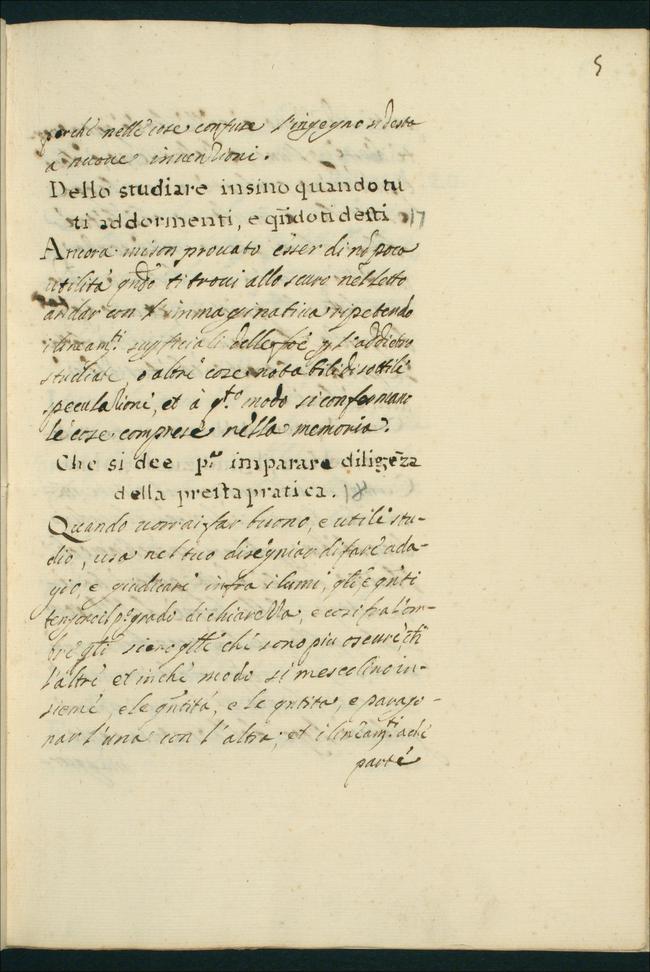 5
perche nelle cose confuse l'ingegno si desta
a nuoue inuenzioni.
Dello studiare insino quando tu
ti addormenti, e qñdo ti desti 17
Ancora mi son prouato esser di nõ poca
utilità qñdo ti troui allo scuro nel letto
andar con l'immaginatiua ripetendo
i lineamti superficiali delle for̃e p l'addietro
studiate, o altre cose notabili di sottile
speculazioni, et à qto modo si confermano
le cose comprese nella memoria.
Che si dee pa imparare diligẽza
della presta pratica. 18
Quando uorrai far buono, e utile stu-
dio, usa nel tuo disegniar di fare ada-
gio, e giudicare infra i lumi, qli e qñti
tengono il po grado di chiarezza, e cosi fra l'om-
bre qli sieno qlle che sono piu oscure, che
l'altre et in che modo si mescolino in-
sieme, e le qñtità, e le qntita, e parago-
nar l'una con l'altra; et i lineamti a che
parte